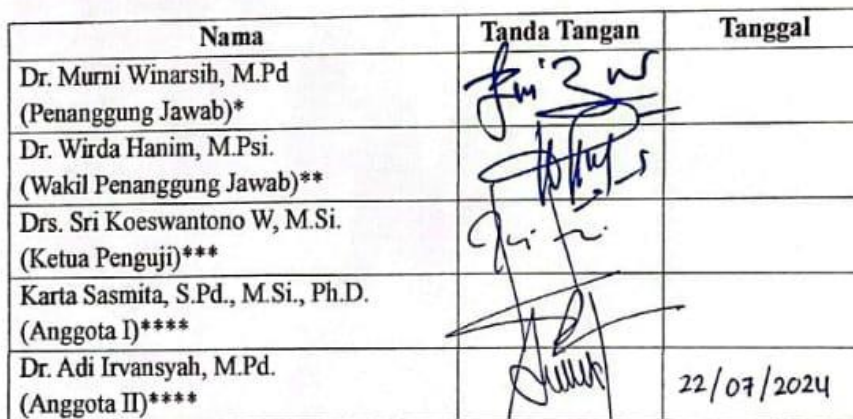 Nama Tanda Tangan Tanggal
Dr. Murni Winarsih, M.Pd
(Penanggung Jawab)*
Dr. Wirda Hanim, M.Psi.
(Wakil Penanggung Jawab)**
Drs. Sri Koeswantono W, M.Si.
(Ketua Penguji)***
Karta Sasmita, S.Pd., M.Si., Ph.D.
(Anggota I)****
Dr. Adi Irvansyah, M.Pd.
(Anggota II)**** 22/07/2024